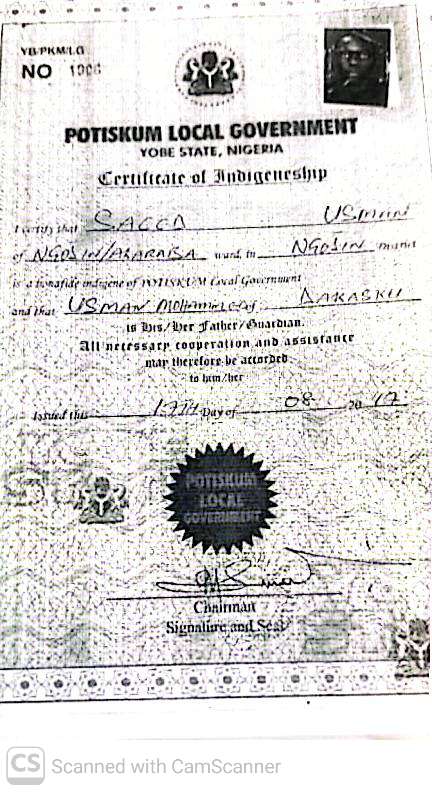 YB/PKM/LG
NO 1006
POTISKUM LOCAL GOVERNMENT
YOBE STATE, NIGERIA
Certificate of Indigeneship
I certify that USMAN
of NGOJIN/ ward, in NGOJIN
is a bonafide indigene of POTISKUM Local Government
and that USMAN
is His/Her Father/Guardian.
All necessary cooperation and assistance
may therefore be accorded
to him/her
Issued this 17TH Day of 08 20 17
POTISKUM
LOCAL
GOVERNMENT
Chairman
Signature and Seal
CS Scanned with CamScanner